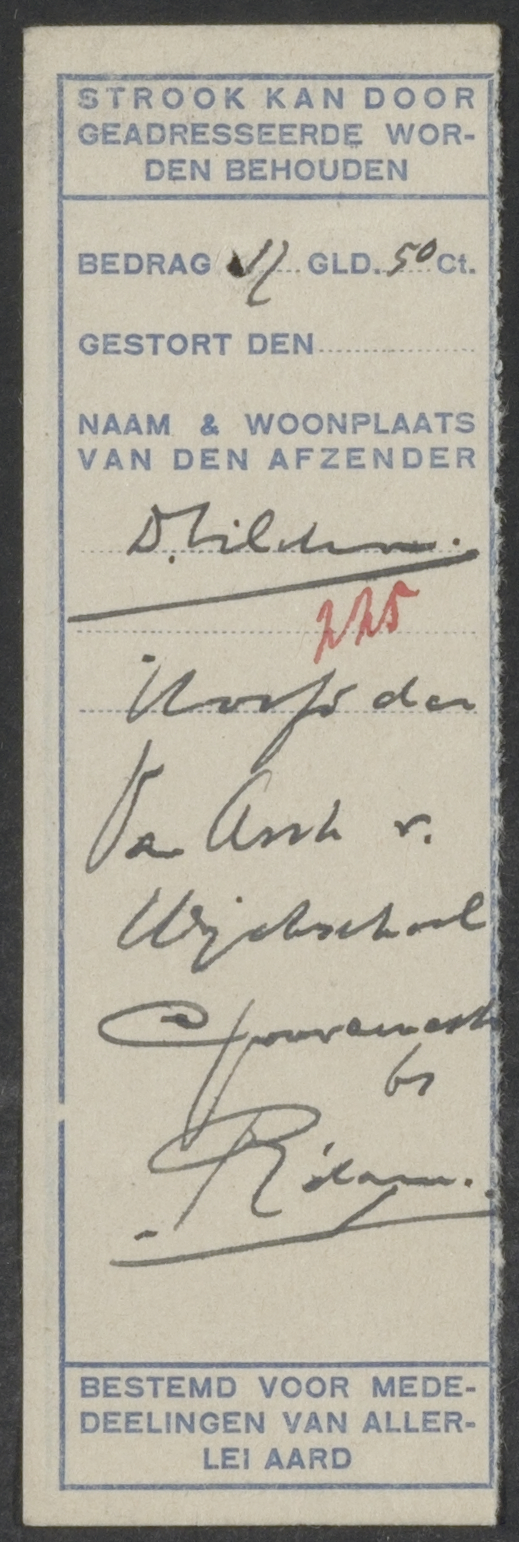 STROOK KAN DOOR
GEADRESSEERDE WOR-
DEN BEHOUDEN
BEDRAG GLD. 50 Ct.
GESTORT DEN
NAAM & WOONPLAATS
VAN DEN AFZENDER
D.
225
Hoofd der
Van Asch v.
Wijckschool
61
R'dam.
BESTEMD VOOR MEDE-
DEELINGEN VAN ALLER-
LEI AARD